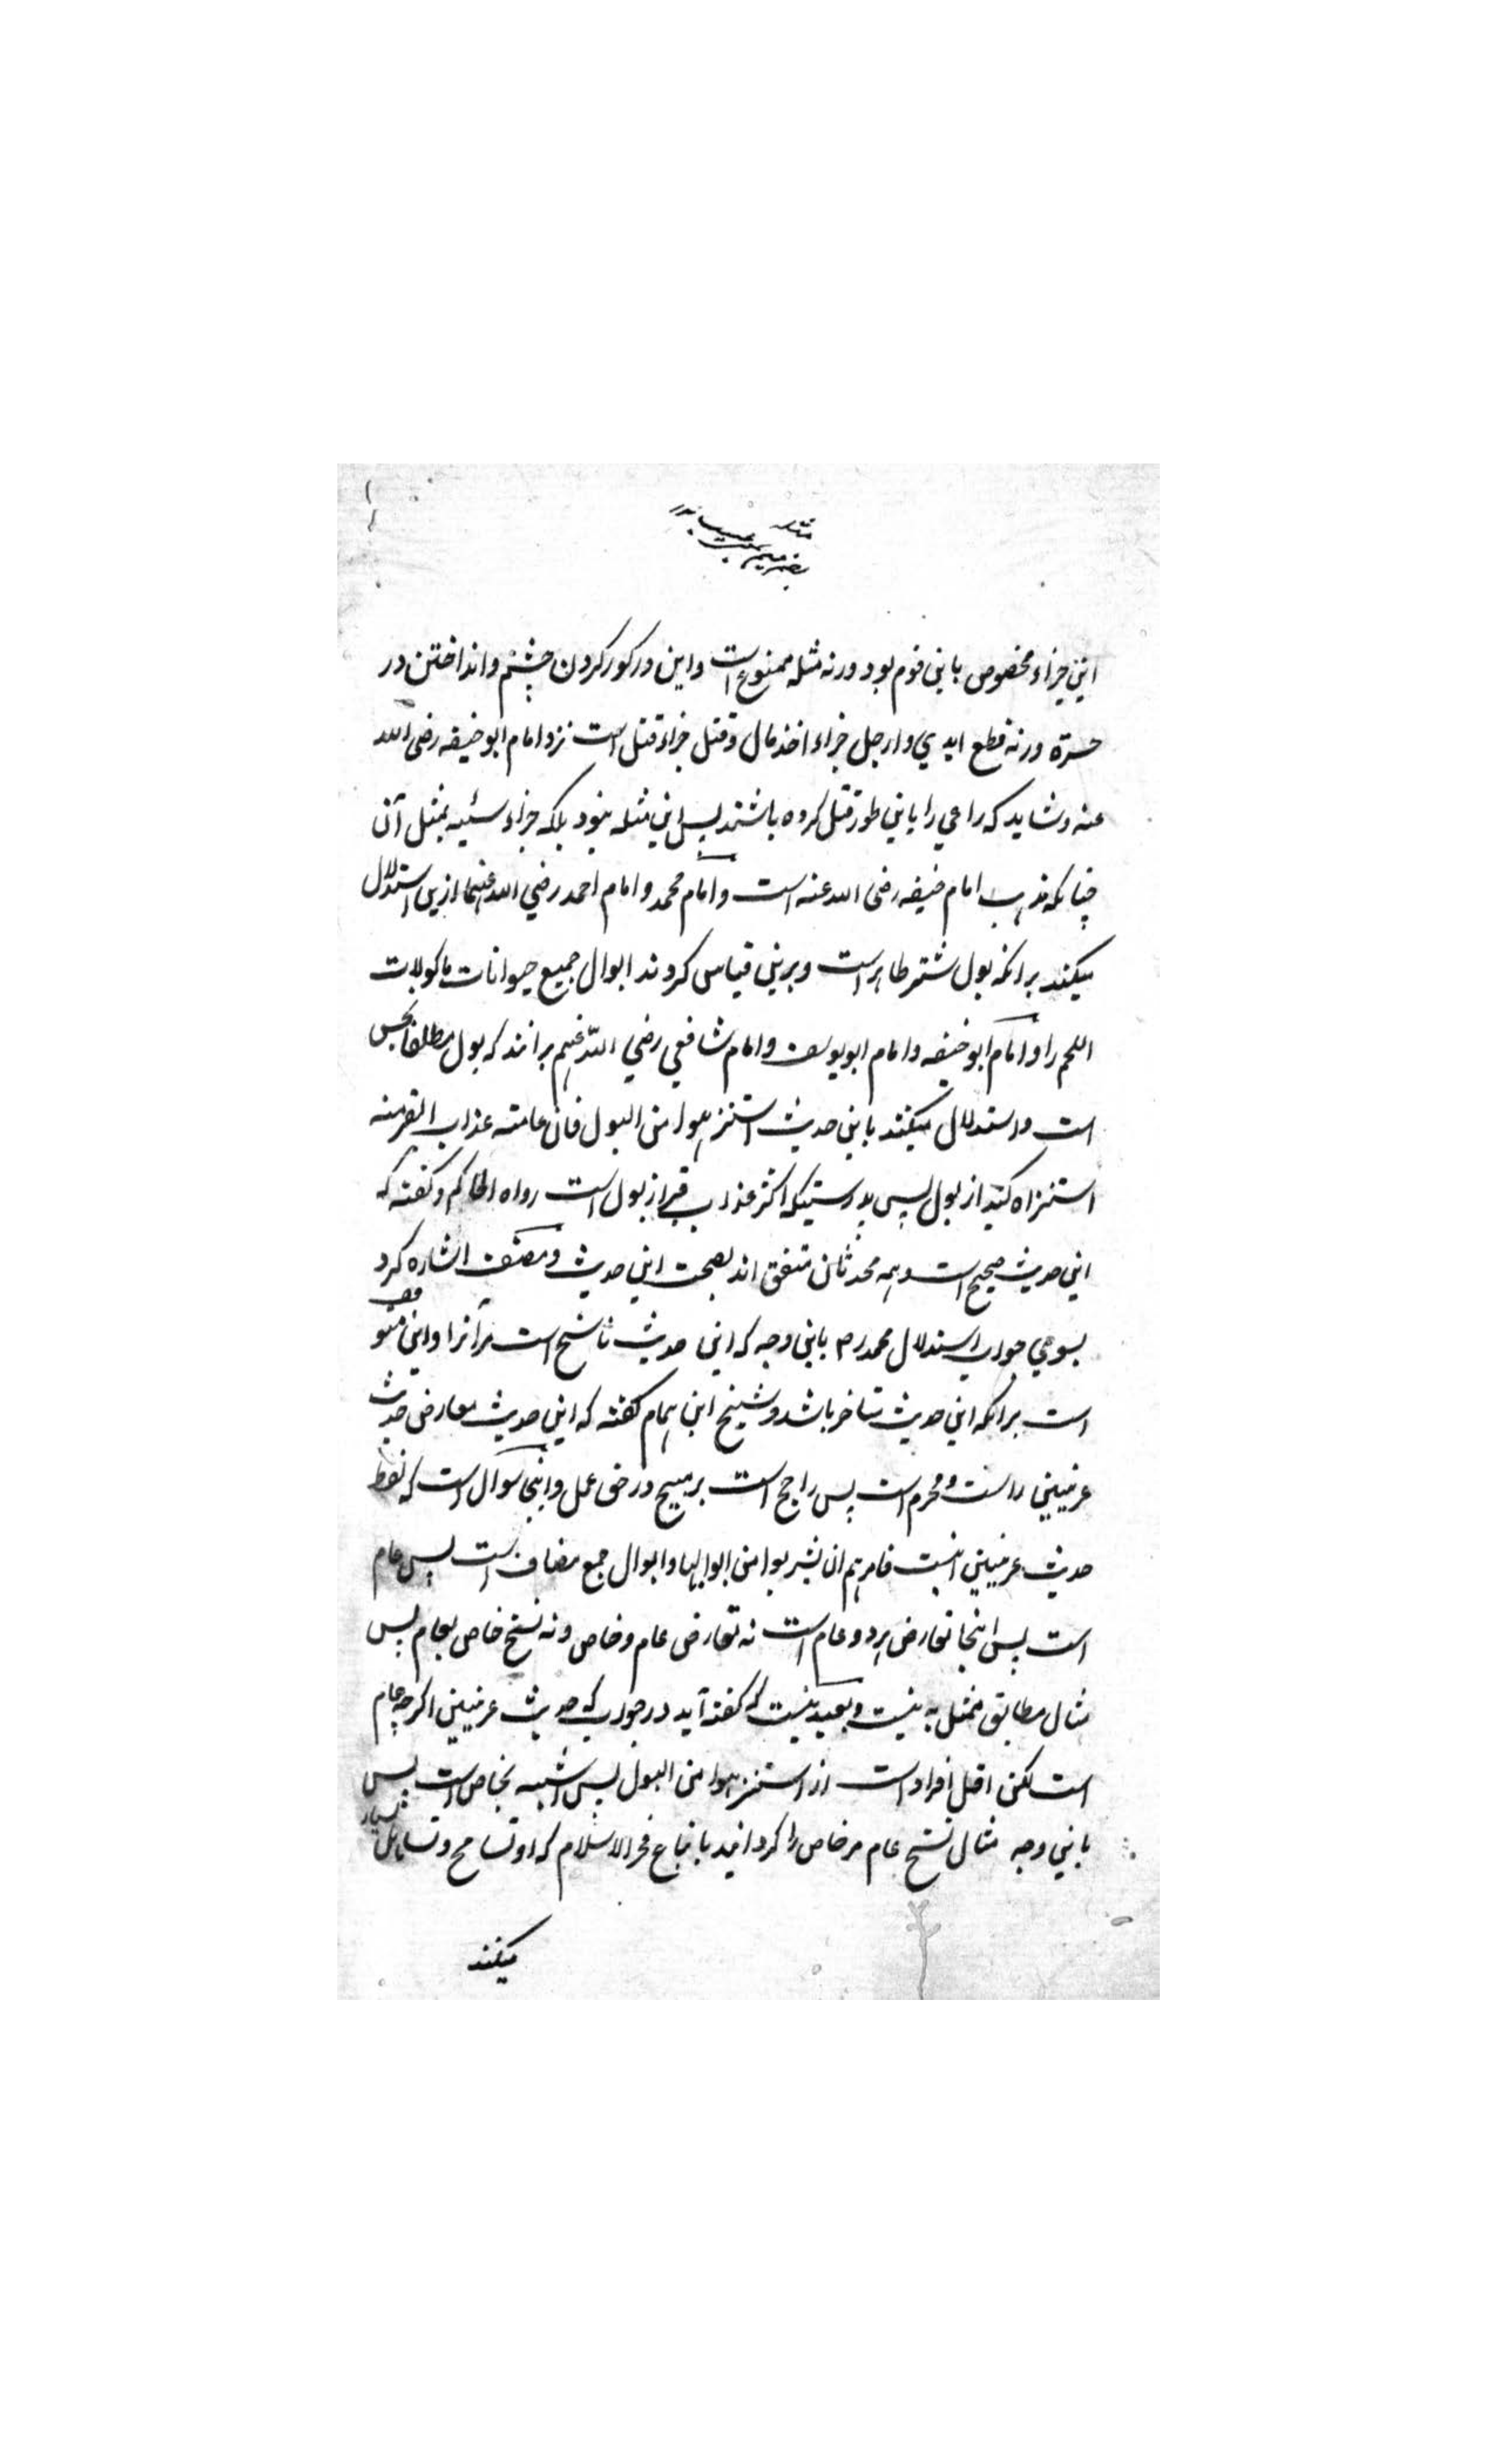 مثله
اینجزاء مخصوص باین قوم بود ورنه مثله ممنوع است واین در کور کردن چشم وانداختن در
حره ورنه قطع ایدي وارجل جزاء اخذ مال وقتل جزاء قتل است نزد امام ابو حنیفه رضی الله
عنه وشاید که راعي را باین طور قتل کرده باشند پس این مثله نبود بلکه جزاء سئیه بمثل آن
چنانکه مذهب امام حنیفه رضی الله عنه است وامام محمد وامام احمد رضي الله عنهما ازین استدلال
میکنند برانکه بول شتر طاهر است وبرین قیاس کردند ابوال جمیع حیوانات ماکولات
اللحم را وامام ابو حنیفه وامام ابو یوسف وامام شافعي رضي الله عنهم برانند که بول مطلقا نجس
است واستدلال میکنند باین حدیث استنزهوا من البول فان عامته عذاب القبر منه
استنزاه کنید از بول پس بدرستیکه اکثر عذاب قبر از بول است رواه الحاکم وگفته که
این حدیث صحیح است وهمه محدثان متفق اند بصحت این حدیث ومصنف اشاره کرد
بسوي جواب استدلال محمد رح باین وجه که این حدیث ناسخ است مر آنرا واین متوقف
است برانکه این حدیث متاخر باشد وشیخ ابن همام گفته که این حدیث معارض حدیث
عرنیین است ومحرم است پس راجح است بر مبیح در حق عمل واینجا سوال است که لفظ
حدیث عرنیین اینست فامرهم ان یشربوا من ابوالها وابوال جمع مضاف است پس عام
است پس اینجا تعارض هر دو عام است نه تعارض عام وخاص ونه نسخ خاص بعام پس
مثال مطابق ممثل به نیست وبعید نیست که گفته آید در جواب که حدیث عرنیین اکرچه عام
است لکن اقل افراد است از استنزهوا من البول پس اشبه بخاص است پس
باین وجه مثال نسخ عام مر خاص را گردانید باتباع فخر الاسلام که او تسامح وتساهل بسیار
میکنند